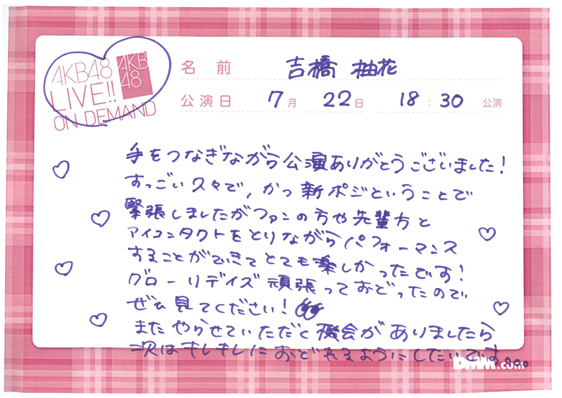 AKB48
LIVE!!
ON DEMAND
AKB
48
名前 吉橋 柚花
公演日 7月 22日 18:30 公演
手をつなぎながら公演ありがとうございました!
すっごい久々で、かつ新ポジということで
緊張しましたがファンの方や先輩方と
アイコンタクトをとりながらパフォーマンス
することができてとても楽しかったです!
グローリーデイズ頑張っておどったので
ぜひ見てください!
またやらせていただく機会がありましたら
次はキレキレにおどれるようにしたいです。。。
DMM.com